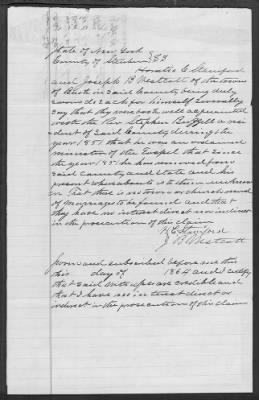 State of New York
County of Steuben } SS
Horatio C Stanford
and Joseph B Westcott of the town
of Bath in said County being duly
sworn do each for himself severally
say that they were both well acquainted
with the Rev Stephen a resi
dent of said County during the
year 1851 that he was an ordained
minister of the Gospel that since
the year 1851 he has removed from
said County and State and his
present whereabouts is to them unknown
That there is no town or church record
of marriages to be found and that
they have no interest direct or indirect
in the prosecution of this claim
H C Stanford
J B Westcott
Sworn and subscribed before me this
this day of 1864 and I certify
that said witnesses are credible and
that I have no interest direct or
indirect in the prosecution of this claim